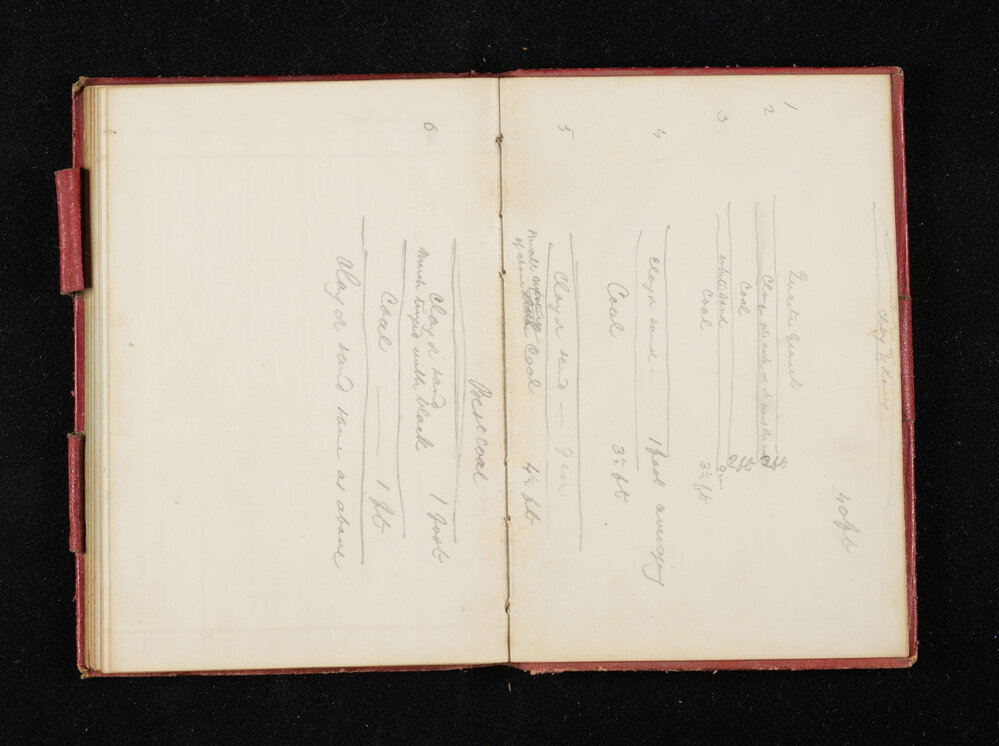 40 ft
1
Quartz Gravel
2
Clay
Coal 2 ft
3
white sand 9 in
Coal 3½ ft
4
Clay & sand - 1 foot averaging
Coal 3½ ft
5
Clay & sand — 9 in
Coal 4½ ft
Best coal
6
Clay & sand 1 foot
much tinged with black
Coal — 1 ft
Clay & sand same as above